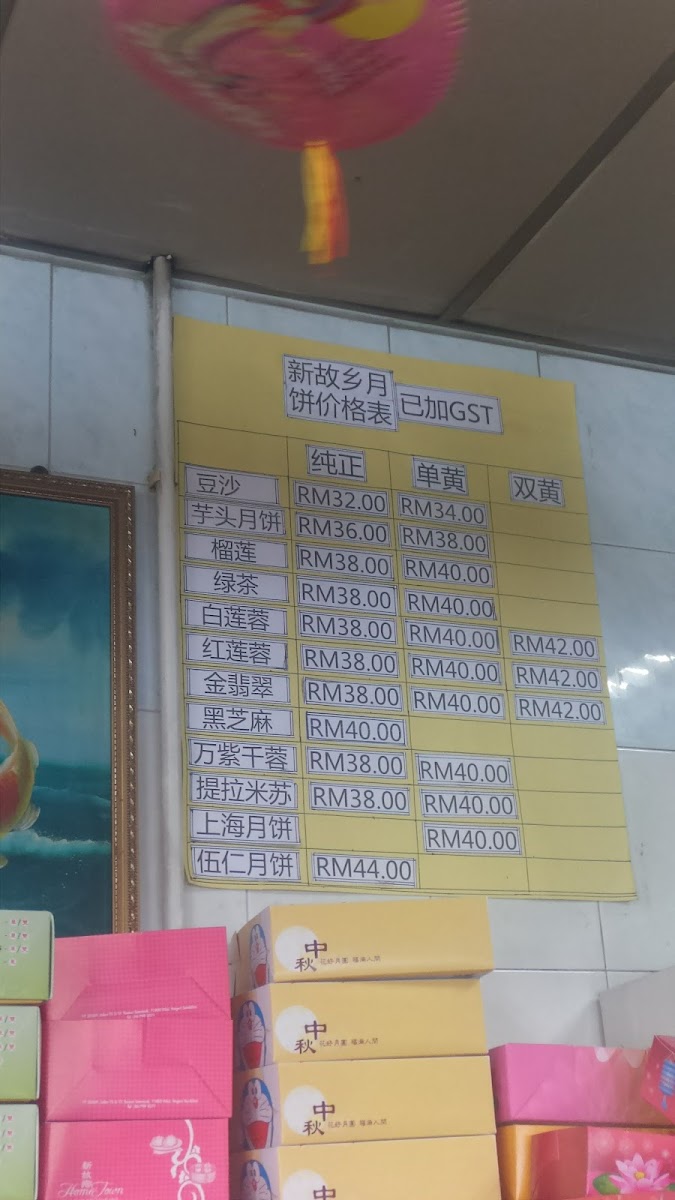 新故乡月
饼价格表 已加GST
纯正 单黄 双黄
豆沙 RM32.00 RM34.00
芋头月饼 RM36.00 RM38.00
榴莲 RM38.00 RM40.00
绿茶 RM38.00 RM40.00
白莲蓉 RM38.00 RM40.00 RM42.00
红莲蓉 RM38.00 RM40.00 RM42.00
金翡翠 RM38.00 RM40.00 RM42.00
黑芝麻 RM40.00
万紫千蓉 RM38.00 RM40.00
提拉米苏 RM38.00 RM40.00
上海月饼 RM40.00
伍仁月饼 RM44.00
中
秋 花好月圓 福滿人間
中
秋 花好月圓 福滿人間
中
秋 花好月圓 福滿人間
中
新故鄉
Home Town